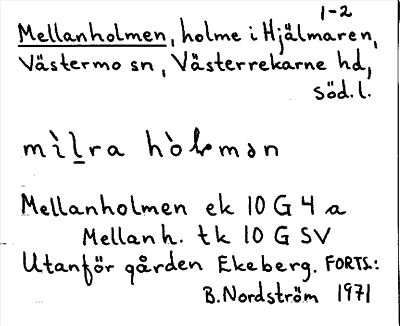 1-2
Mellanholmen, holme i Hjälmaren,
Västermo sn, Västerrekarne hd,
Söd.l.
mìl̲ra hòlmən
Mellanholmen ek 10 G 4 a
Mellanh. tk 10 G SV
Utanför gården Ekeberg. FORTS.:
B.Nordström 1971